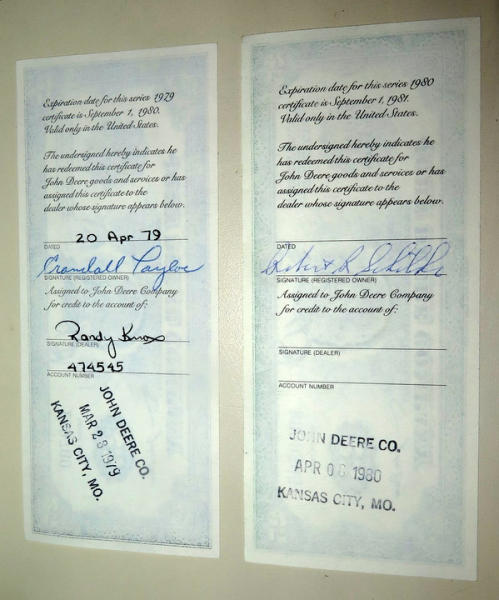 Expiration date for this series 1979
certificate is September 1, 1980.
Valid only in the United States.
The undersigned hereby indicates he
has redeemed this certificate for
John Deere goods and services or has
assigned this certificate to the
dealer whose signature appears below.
20 Apr 79
DATED
Crandall Taylor
SIGNATURE (REGISTERED OWNER)
Assigned to John Deere Company
for credit to the account of:
Randy Knox
SIGNATURE (DEALER)
474545
ACCOUNT NUMBER
JOHN DEERE CO.
MAR 28 1979
KANSAS CITY, MO.
Expiration date for this series 1980
certificate is September 1, 1981.
Valid only in the United States.
The undersigned hereby indicates he
has redeemed this certificate for
John Deere goods and services or has
assigned this certificate to the
dealer whose signature appears below.
DATED
SIGNATURE (REGISTERED OWNER)
Assigned to John Deere Company
for credit to the account of:
SIGNATURE (DEALER)
ACCOUNT NUMBER
JOHN DEERE CO.
APR 08 1980
KANSAS CITY, MO.